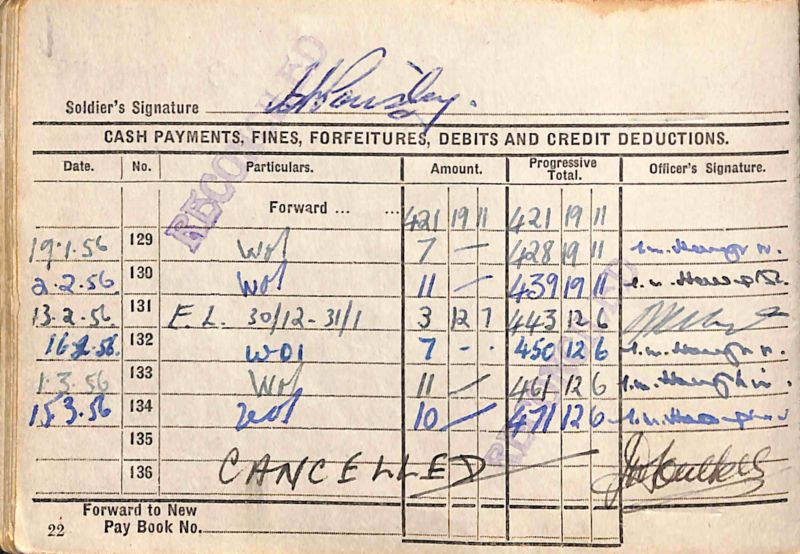 RECONCILED
Soldier's Signature
CASH PAYMENTS, FINES, FORFEITURES, DEBITS AND CREDIT DEDUCTIONS.
Date. No. Particulars. Amount. Progressive Total. Officer's Signature.
Forward ... ... 421 19 11 421 19 11
19.1.56 129 7 — 428 19 11
2.2.56. 130 11 — 439 19 11
13.2.56. 131 E.L. 30/12-31/1 3 12 7 443 12 6
16.2.56. 132 7 - - 450 12 6
1.3.56 133 11 — 461 12 6
15.3.56 134 10 — 471 12 6
135
136 CANCELLED
Forward to New
Pay Book No.
22